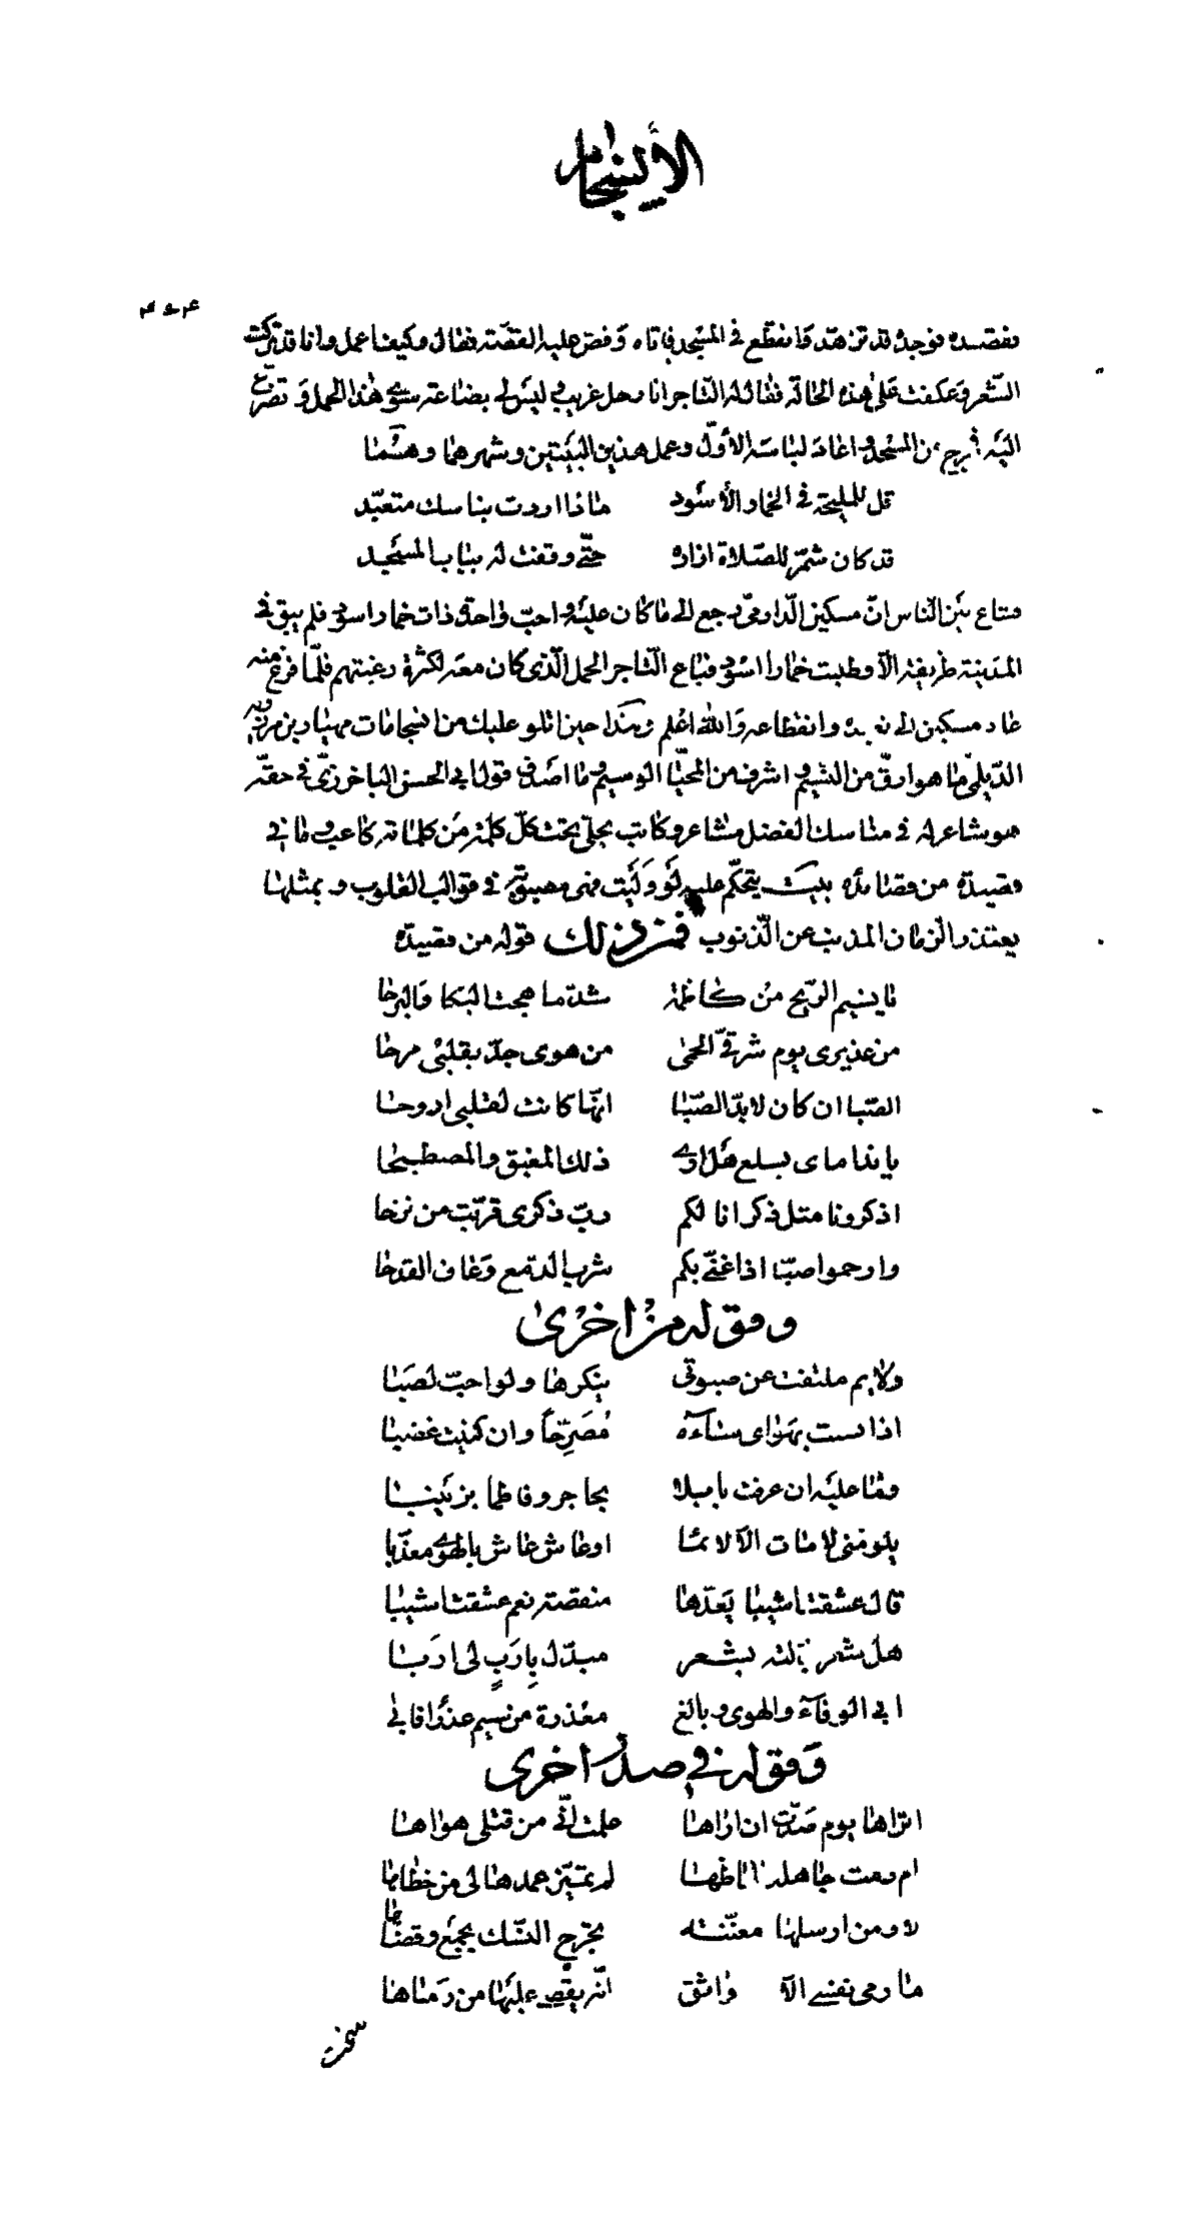 الانسجام
فقصده فوجده قد تزهد وانقطع في المسجد فاتاه وقص عليه القصة فقال وكيف اعمل وانا قد تركت
الشعر وعكفت على هذه الحالة فقال له التاجر انا رجل غريب وليس لي بضاعة سوى هذا الحمل وتضرع
اليه فخرج من المسجد واعاد لباسه الأول وعمل هذين البيتين وشهرهما وهما
قل للمليحة في الخمار الأسود ماذا اردت بناسك متعبّد
قد كان شمّر للصلاة ازاره حتّى وقفت له بباب المسجد
فشاع بين الناس انّ مسكين الدارمي رجع الى ما كان عليه واحبّ واحدة ذات خمار اسود فلم يبق في
المدينة ظريفة الا وطلبت خمارا اسود فباع التاجر الحمل الذي كان معه لكثرة رغبتهم فلمّا فرغ منه
عاد مسكين الى تعبده وانقطاعه والله اعلم وهكذا حين اتلو عليك من انسجامات مهيار بن مرزويه
الديلمي ما هو ارقّ من النسيم واشرف من المحيّا الوسيم وما اصدق قول ابي الحسن الباخرزيّ في حقه
هو شاعر له في مناسك الفضل مشاعر وكاتب تجلى تحت كلّ كلمة من كلماته كاعب وما في
قصيدة من قصائده بيت يتحكم عليه لو وليت فهي مصبوبة في قوالب القلوب وبمثلها
يعتذر الزمان المذنب عن الذنوب فمن ذلك قوله من قصيدة
يا نسيم الريح من كاظمة شدّ ما هجت البكا والبرحا
من عذيري يوم شرقيّ الحمى من هوى جدّ بقلبي مرحا
الصبا ان كان لا بدّ الصبا انها كانت لقلبي اروحا
يا نداماي بسلع هل ارى ذلك المغبق والمصطبحا
اذكرونا مثل ذكرانا لكم ربّ ذكرى قرّبت من نزحا
وارحموا صبّا اذا غنّى بكم شرب الدمع وعاف القدحا
وقوله من اخرى
ولايم ملتفت عن صبوتي ينكرها ولو احبّ لصبا
اذا نسبت بهواي ساءه مصرّحاً وان كنيت غضبا
وما عليه ان عرفت بابلا بحاجر وفاطما بزينبا
يلومني لا مات الا لائما او عاش عاش بالهوى معذبا
قال عشقت اشيبا يعدّها منقصة نعم عشقت اشيبا
هل شعر بدلته بشعر مبدّل بِارَبٍ لي ارَبا
ابى الوفاء والهوى وبالغ معذرة من سيم عذرا فابى
وقوله في صدر اخرى
اتراها يوم صدّت ان اراها علمت انّي من قتلى هواها
ام رمت جاهلة الحاظها لم تميّز عمدها لي من خطاها
لا ومن ارسلها معنّته تحرج النسك بجمع وقضاها
ما رمى نفسي الا واثق انّه يقص عليها من رماها